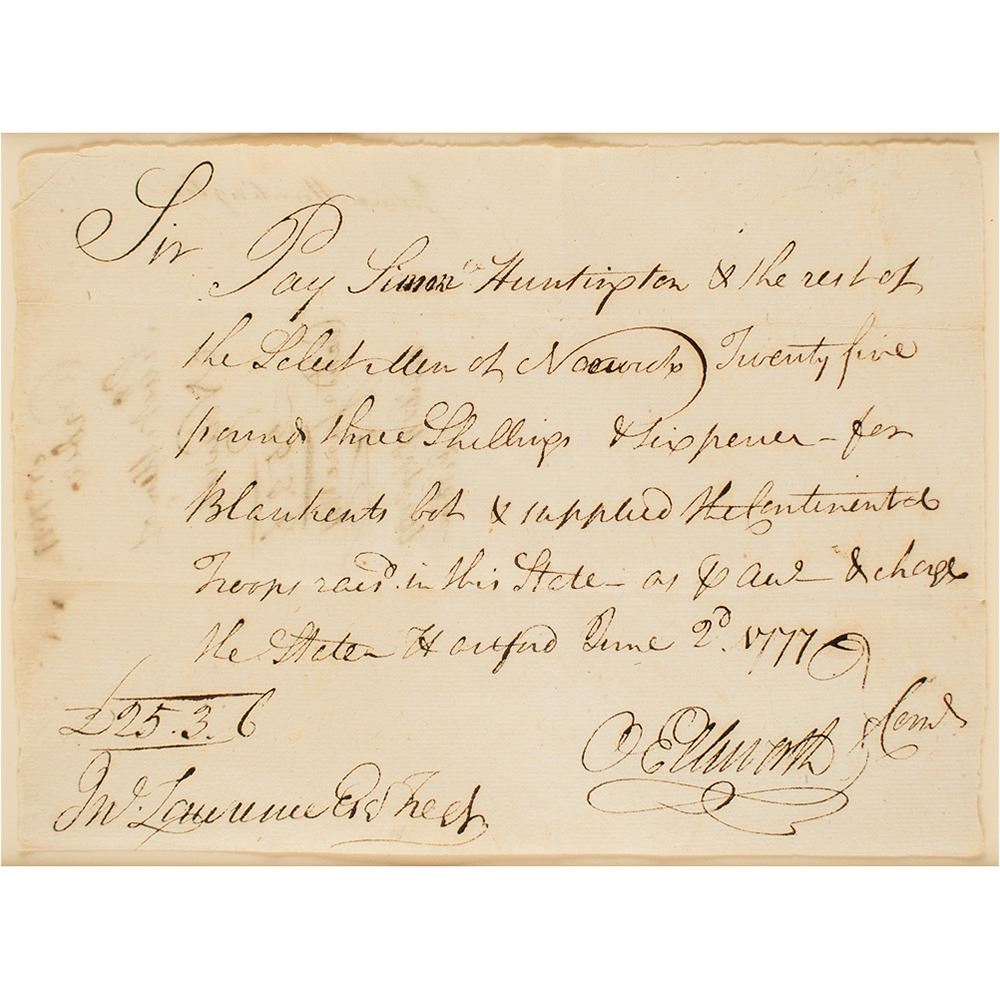 Sir
Pay Simon Huntington & the rest of
the Select Men of Norwich Twenty five
pound three Shillings & sixpence – for
Blankents bot & supplied the Continental
Troops raisd in this State – as ⅌ acct & charge
the State – Hartford June 2d. 1777
£25.3.6
O Ellsworth } Comte
Jno. Lawrence Esqr Treasr